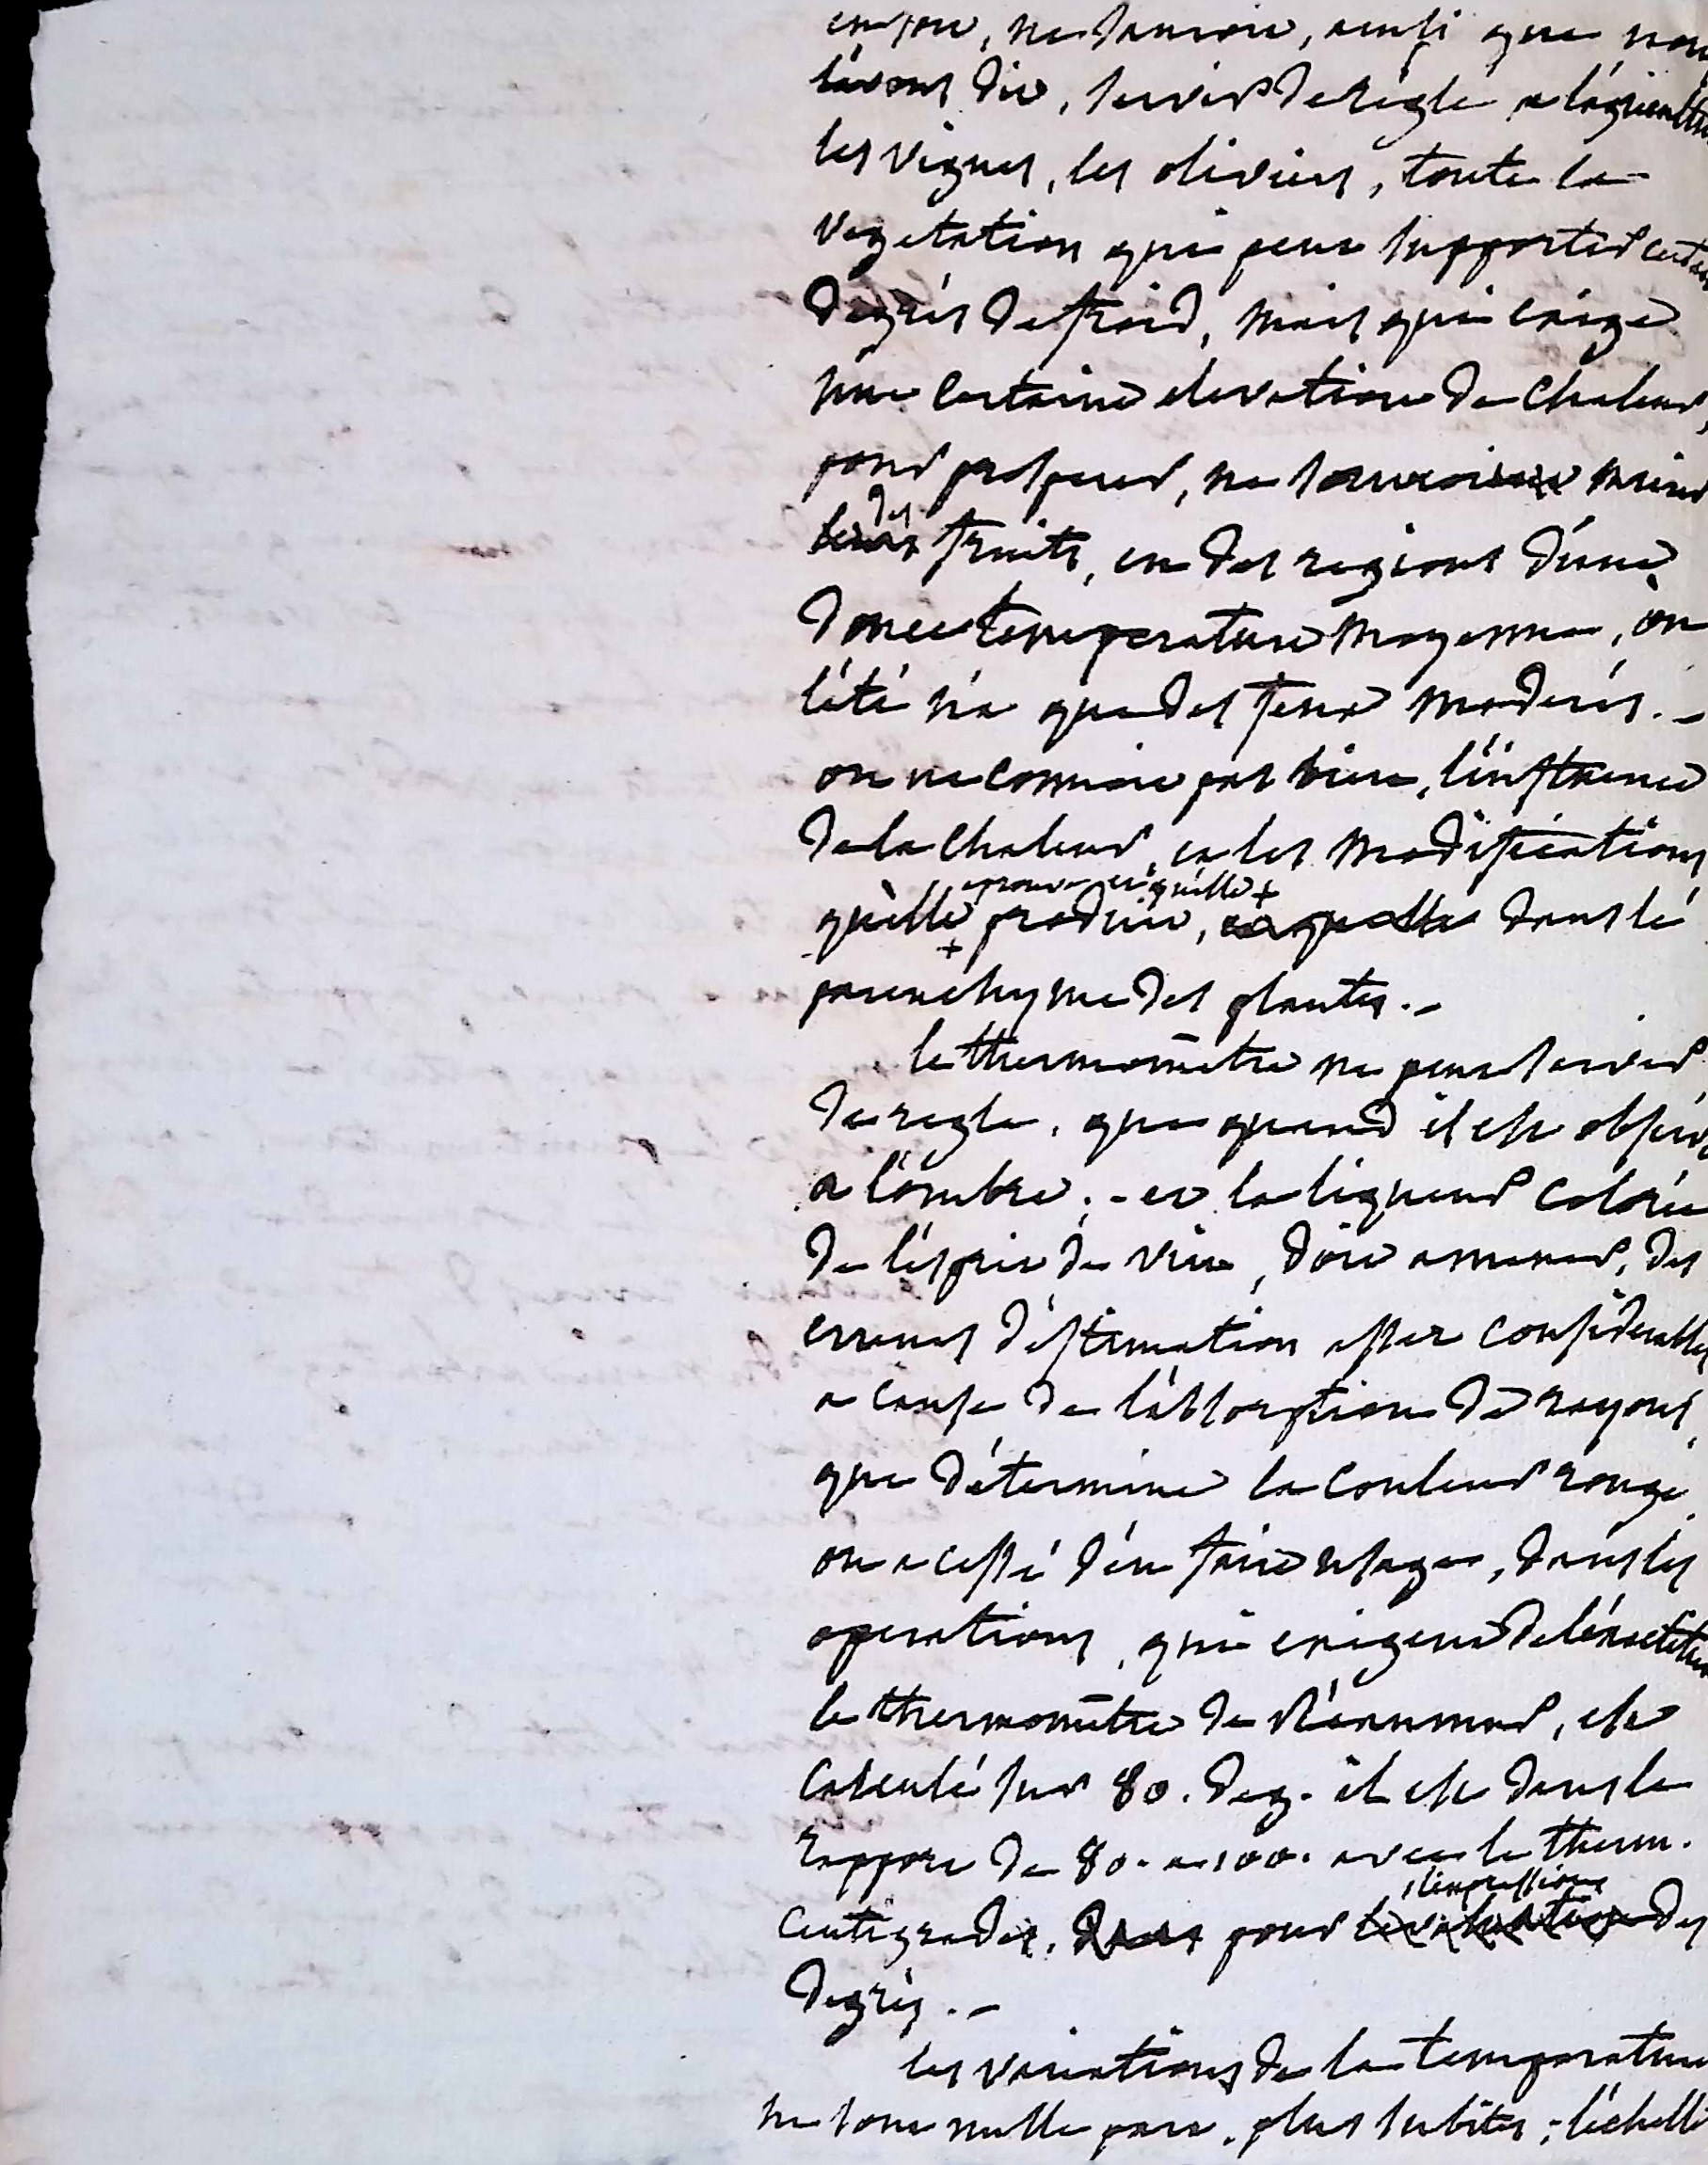 ne sauroit, ainsi que nous
l'avons dit, servir de règle a l'agricultu
les vignes, les oliviers, toute la
vegetation qui peut supporter certai
degrés de froid, mais qui exige
une certaine elevation de chaleur,
pour prosperer, ne sauroit murir
des fruits, en des regions d'une
douce temperature moyenne, ou
l'été n'a que des feux moderés. -
on ne connoit pas bien, l'influence
de la chaleur, et les modifications
eprouve et qu'elle +
qu'elle + produit, et qu'elle dans le
parenchyme des plantes. -
le thermomètre ne peut servir
de regle, que quand il est observ
a l'ombre; - et la liqueur colorée
de l'esprit de vin, doit amener, des
erreurs d'estimation assez considerables
a cause de l'absorption de rayons,
que détermine la couleur rouge.
on a cessé d'en faire usage, dans les
operations, qui exigent de l'exactitu
le thermomètre de Réaumur, est
calculé sur 80. deg. il est dans le
rapport de 80. a 100. avec le therm.
l'expression
centigrades, dans pour l'evaluation des
degrés. -
les variations de la temperature
ne sont nulle part, plus subites; l'échelle